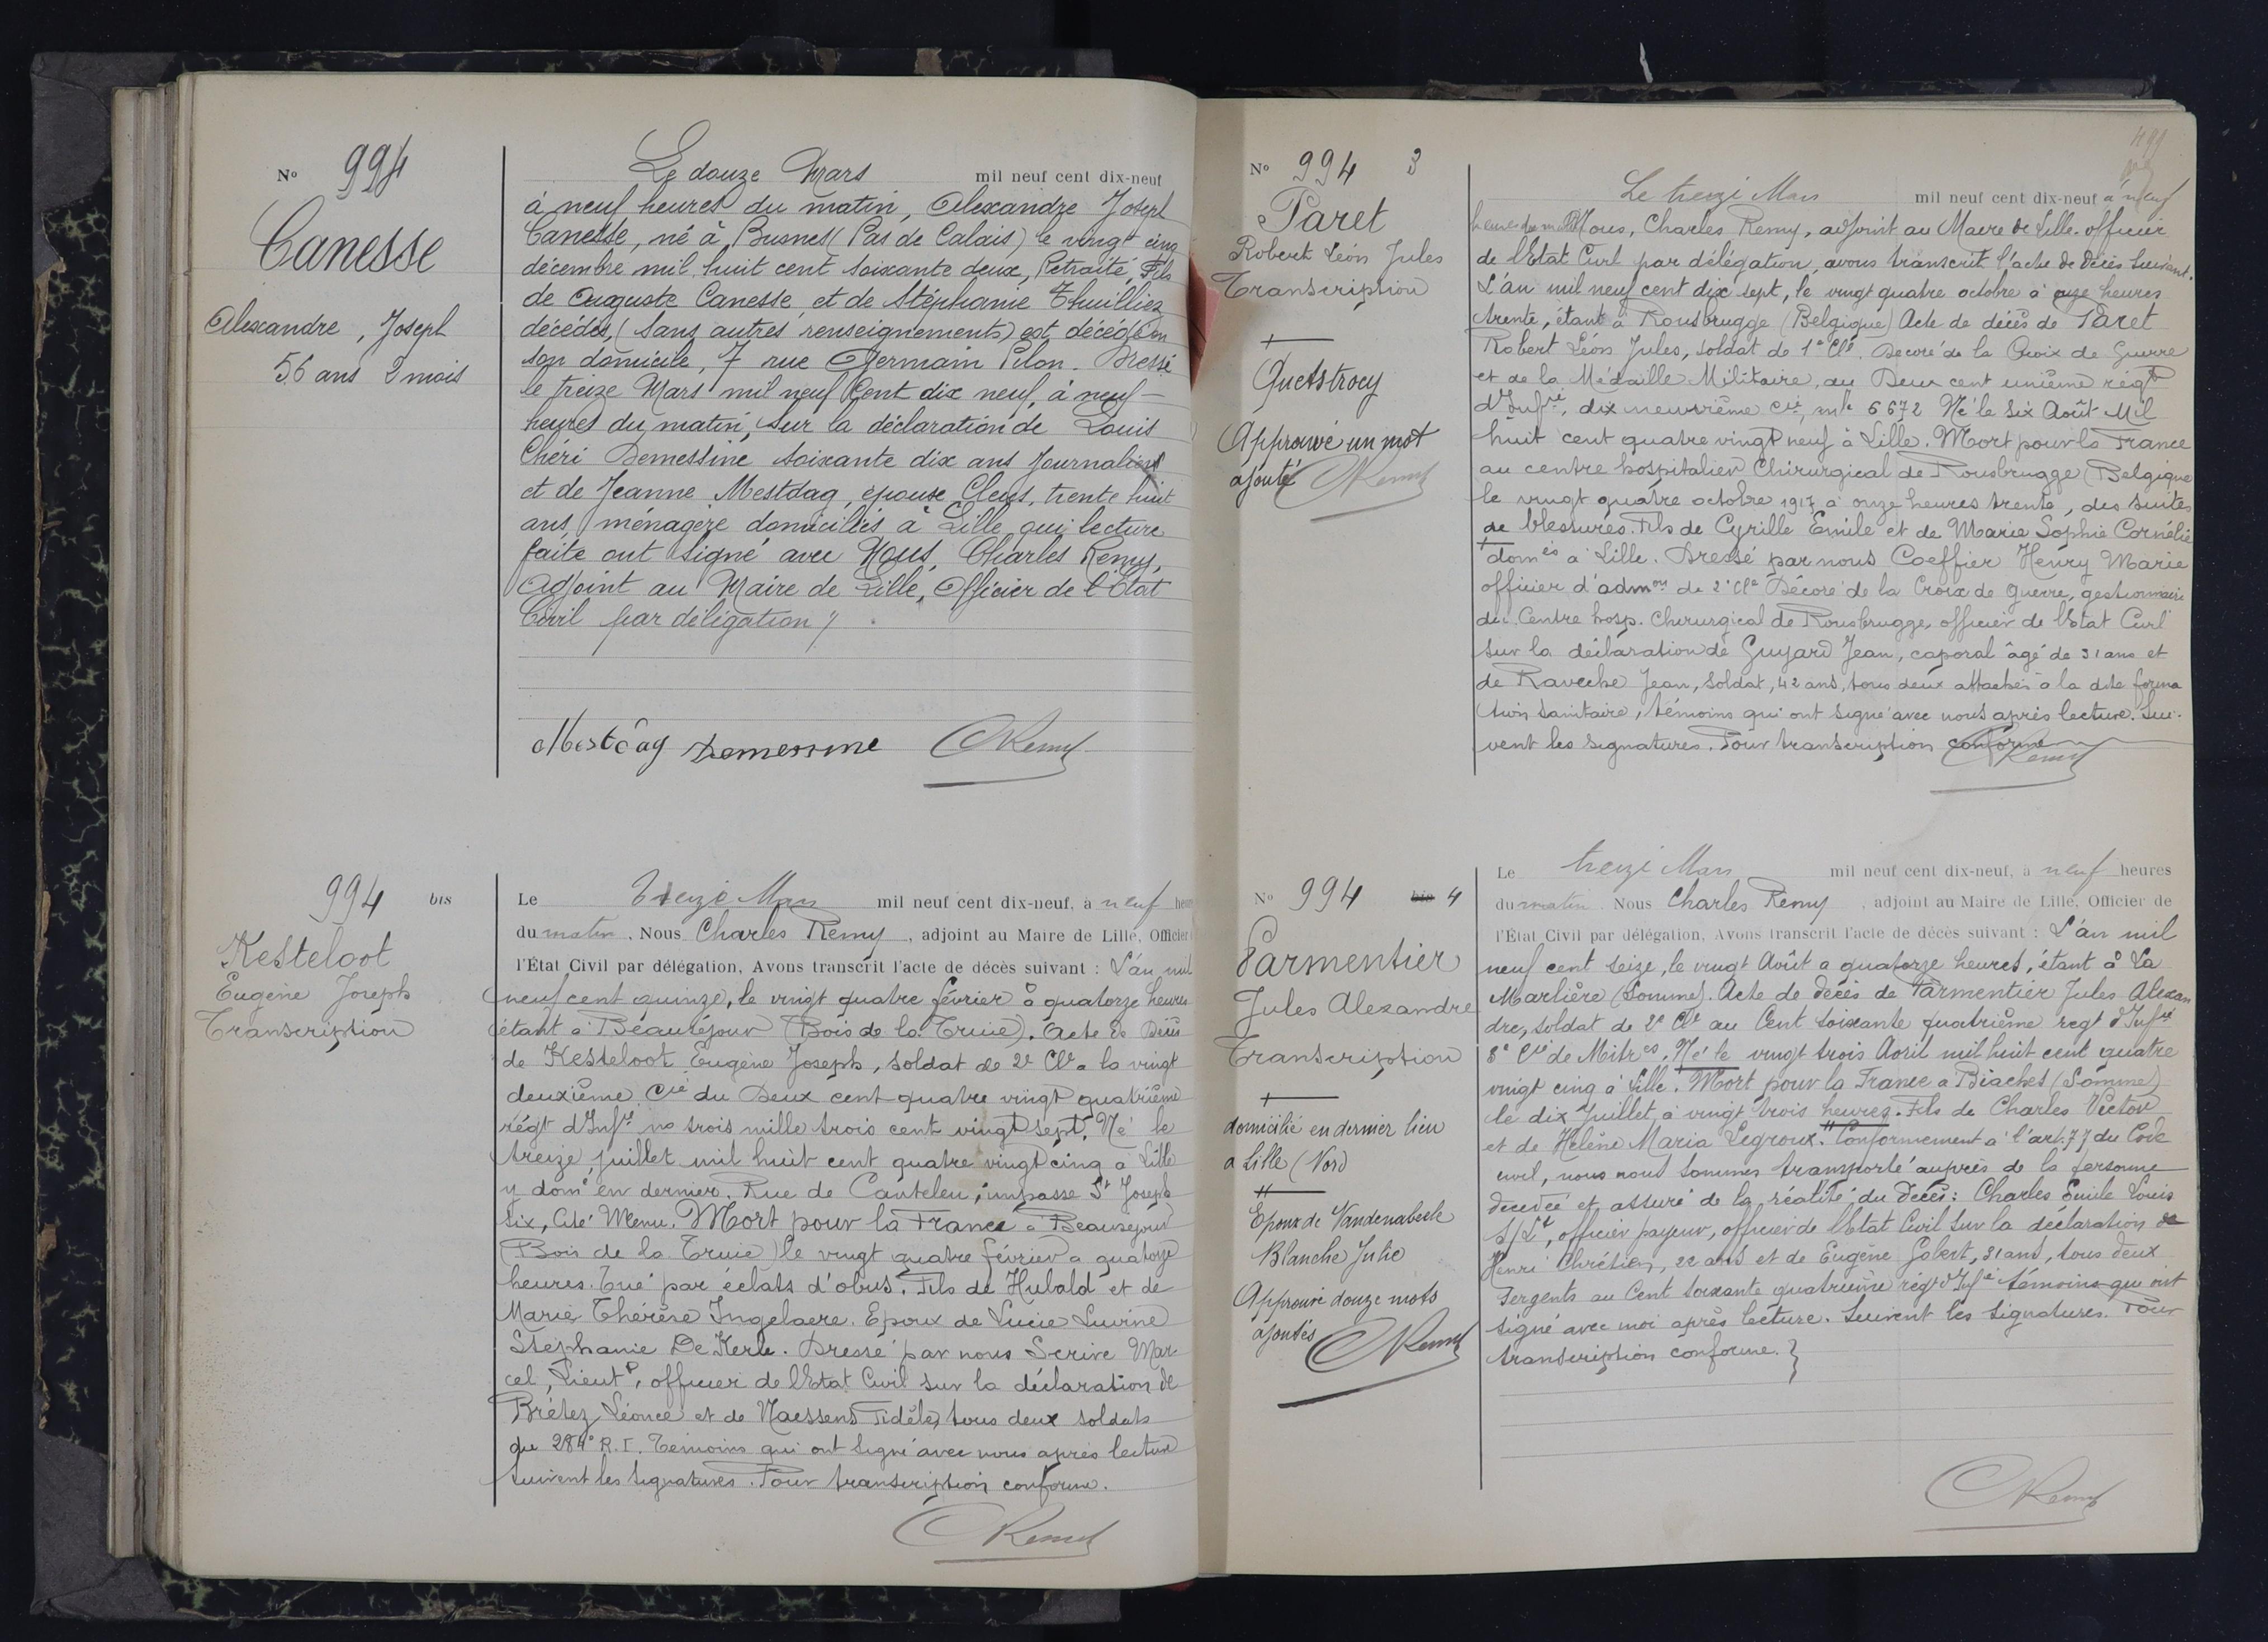 No 994
Canesse
Alexandre, Joseph
56 ans 2 mois
Le douze Mars mil neuf cent dix-neuf
à neuf heures du matin, Alexandre Joseph
Canesse, né à Busnes (Pas de Calais) le vingt cinq
décembre mil huit cent soixante deux, Retraité, Fils
de Auguste Canesse, et de Stéphanie Thuilliez
décédés, (sans autres renseignements) est décédé en
son domicile, 7 rue Germain Pilon. Dressé
le treize Mars mil neuf Cent dix neuf, à neuf —
heures du matin, sur la déclaration de Louis
Chéri Demessine soixante dix ans journaliers
et de Jeanne Mestdag, épouse Cleus, trente huit
ans, ménagère domiciliés à Lille, qui lecture
faite ont signé avec Nous, Charles Remy,
Adjoint au Maire de Lille, Officier de l'État
Civil par délégation
Mestdag Demessine CRemy
994 bis
Kesteloot
Eugène Joseph
Transcription
Le Treize Mars mil neuf cent dix-neuf, à neuf heures
du matin. Nous Charles Remy, adjoint au Maire de Lille, Officier
l'État Civil par délégation, Avons transcrit l'acte de décès suivant : L'an mil
neuf cent quinze, le vingt quatre février à quatorze heures
étant à Beauséjour (Bois de la Truie). Acte de Décès
de Kesteloot Eugène Joseph, soldat de 2e Cle a la vingt
deuxième Cie du Deux cent quatre vingt quatrième
régt d'Infie no trois mille trois cent vingt sept. Né le
treize juillet mil huit cent quatre vingt cinq à Lille
y domé en dernier. Rue de Canteleu, impasse St Joseph
six, Cité Menu. Mort pour la France à Beauséjour
(Bois de la Truie) le vingt quatre février a quatorze
heures. Tué par éclats d'obus. Fils de Hubald et de
Marie Thérèse Ingelaere. Epoux de Lucie Luvine
Stéphanie De Kerle. Dressé par nous Scrive Mar
cel, Lieutt, officier de l'Etat Civil sur la déclaration de
Brétez Léonce et de Naessens Fidèle, tous deux soldats
du 284e R.I. Témoins qui ont signé avec nous après lecture
suivent les signatures. Pour transcription conforme.
CRemy
499
No 994 3
Paret
Robert Léon Jules
Transcription
Quetstroey
Approuvé un mot
ajouté CRemy
Le treize Mars mil neuf cent dix-neuf à neuf
heures du matin Nous, Charles Remy, adjoint au Maire de Lille, officier
de l'Etat Civil par délégation, avons transcrit l'acte de décès suivant.
L'an mil neuf cent dix sept, le vingt quatre octobre à onze heures
trente, étant à Rousbrugge (Belgique) Acte de décès de Paret
Robert Léon Jules, soldat de 1e Cle. Décoré de la Croix de Guerre
et de la Médaille Militaire, au Deux cent unième régt
d'Infie, dix neuvième Cie, mle 6672 Né le six Août Mil
huit cent quatre vingt neuf à Lille. Mort pour la France
au centre hospitalier Chirurgical de Rousbrugge (Belgique
le vingt quatre octobre 1917 à onze heures trente, des suites
de blessures. Fils de Cyrille Emile et de Marie Sophie Cornélie
domés à Lille. Dressé par nous Coeffier Henry Marie
officier d'admon de 2e Cle Décoré de la Croix de Guerre, gestionnaire
du Centre hosp. Chirurgical de Rousbrugge, officier de l'Etat Civil
sur la déclaration de Guyard Jean, caporal âgé de 31 ans et
de Raveche Jean, soldat, 42 ans, tous deux attachés à la dite forma
tion sanitaire, témoins qui ont signé avec nous après lecture. Sui-
vent les signatures. Pour transcription conforme
CRemy
No 994 bis 4
Parmentier
Jules Alexandre
Transcription
domicilié en dernier lieu
a Lille (Nord
Epoux de Vandenabeele
Blanche Julie
Approuvé douze mots
ajoutés CRemy
Le treize Mars mil neuf cent dix-neuf, à neuf heures
du matin. Nous Charles Remy, adjoint au Maire de Lille, Officier de
l'État Civil par délégation, Avons transcrit l'acte de décès suivant : L'an mil
neuf cent seize, le vingt Août a quatorze heures, étant à La
Marlière (Somme). Acte de décès de Parmentier Jules Alexan
dre, soldat de 2e Cle au Cent soixante quatrième régt d'Infie
8e Cie de Mitres. Né le vingt trois Avril mil huit cent quatre
vingt cinq à Lille. Mort pour la France a Biaches (Somme)
le dix Juillet, à vingt trois heures. Fils de Charles Victor
et de Hélène Maria Legroux. Conformément à l'art. 77 du Code
civil, nous nous sommes transporté auprès de la personne
décédée et assuré de la réalité du décès: Charles Emile Louis
S/Lt, officier payeur, officier de l'Etat Civil sur la déclaration de
Henri Chrétien, 22 ans et de Eugène Gobert, 31 ans, tous deux
sergents au Cent soixante quatrième régt d'Infie témoins qui ont
signé avec moi après lecture. Suivent les signatures. Pour
transcription conforme.
CRemy